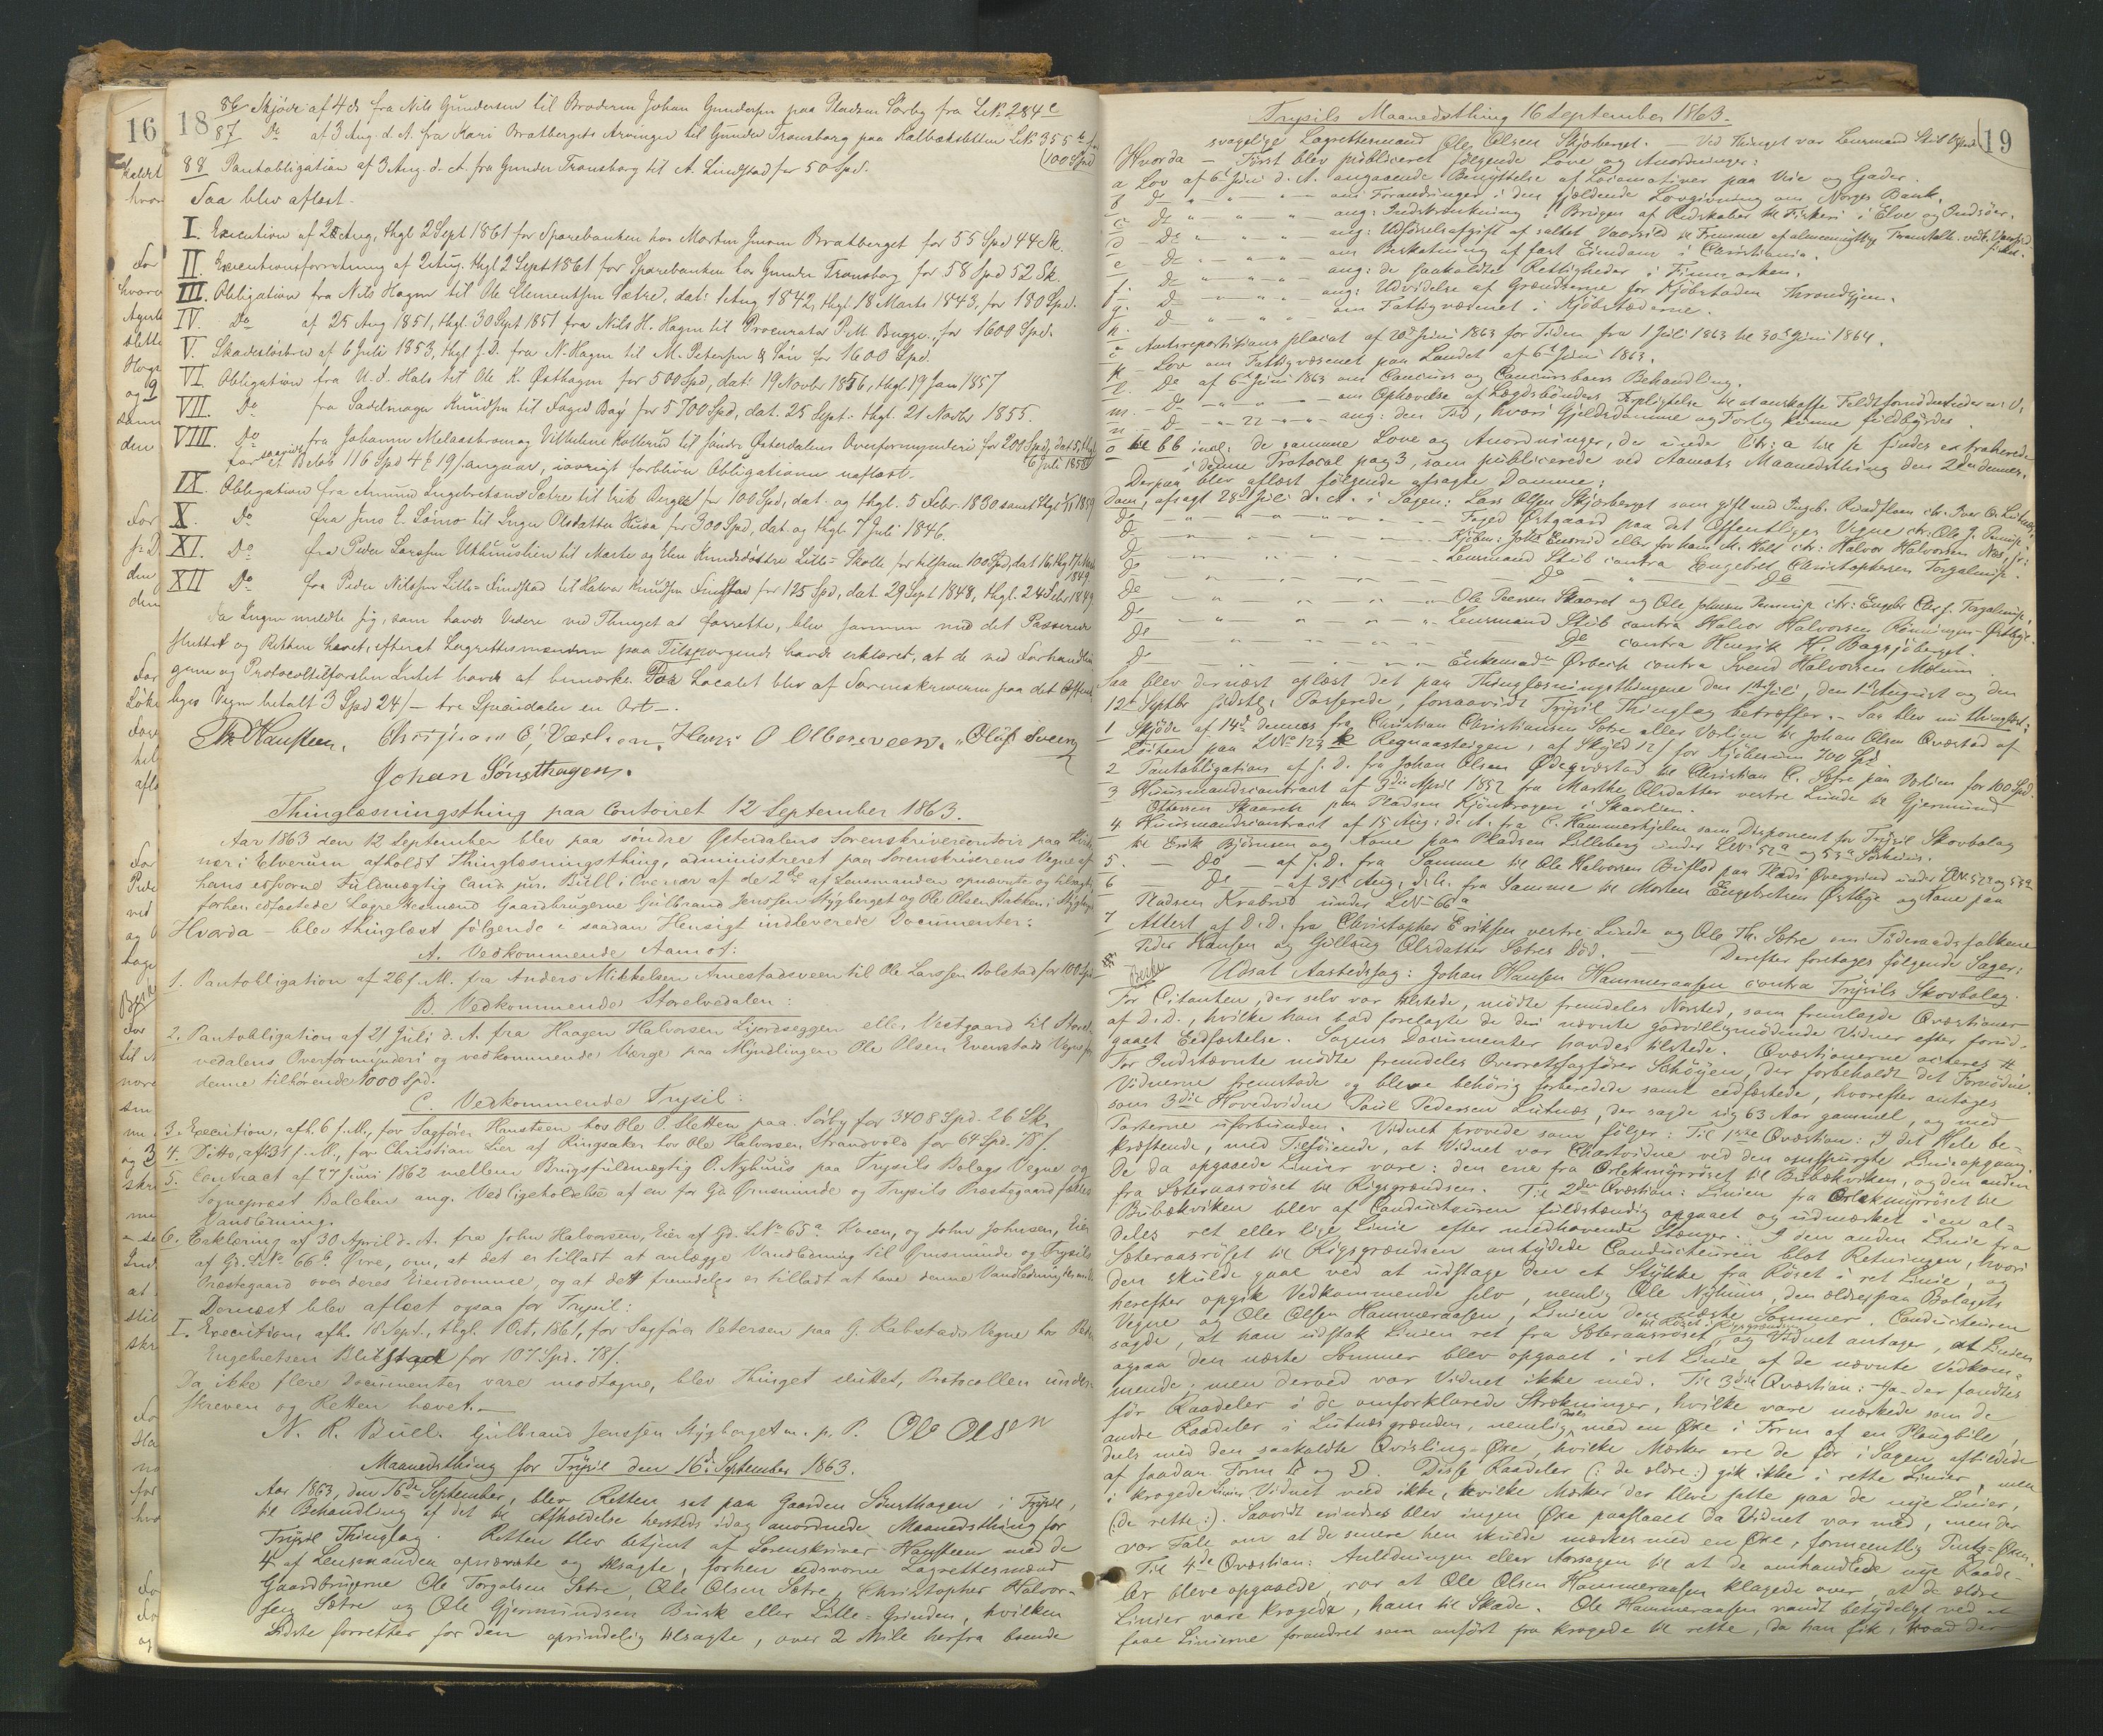 16
18
86 Skjøde af 4de fra Nils Gundersen til Broderen Johan Gundersen paa Pladsen Sørby fra LNo 284 c
87 Do af 3 Aug. d. A. fra Kari Bratbergets Arvinger til Gunder Transborg paa Kalbaksletten LNo 355 b for
(100 Spd
88 Pantobligation af 3 Aug. d. A. fra Gunder Transborg til A. Lindstad for 50 Spd.
Saa blev aflæst.
I. Execution af 2 Aug, thgl 2 Sept 1861 for Sparebanken hos Morten Bratberget for 55 Spd 44 Sk.
II. Executionsforretning af 2 Aug. thgl 2 Sept 1861 for Sparebanken hos Gunder Transborg for 58 Spd 52 Sk.
III. Obligation fra Nils Hagen til Ole Clementsen Sætre, dat: 1 Aug 1842, thgl. 18 Marts 1843, for 180 Spd.
IV. Do af 25 Aug 1851, thgl. 30 Sept 1851 fra Nils H. Hagen til Procurator P. M. Bugge, for 1600 Spd.
V. Skadesløsbrev af 6 Juli 1853, thgl s. D. fra N. Hagen til M. Petersen & Søn for 1600 Spd.
VI. Obligation fra til Ole K. Østhagen for 500 Spd, dat: 19 Novbr 1856, thgl. 19 Jan 1857
VII. Do fra Sadelmager Knudsen til Foged Bay for 5700 Spd, dat. 25 Sept. thgl. 21 Novbr 1855.
VIII. Do fra Johannes Melaastrom og Vilhelmine Kollerud til søndre Østerdalens Overformynderi for 200 Spd, dat 5, thgl
6 Juli 1858
for saavidt et Beløb 116 Spd 4 ₰ 19 s. angaar, iøvrigt forbliver Obligationen uaflæst.
IX. Obligation fra Amund Engebretsens Sætre til Erik Berger for 100 Spd, dat. og thgl. 5 Febr. 1830 samt thgl 1859
X. Do fra Jens E. Lømo til Inger Olsdatter Husa for 300 Spd, dat. og thgl. 7 Juli 1846.
XI. Do fra Peder Larssen til Marte og Elen Knudsdøttre Lille-Skolle for tilsam. 100 Spd, dat 16 thgl 17 Marts
1849.
XII Do fra Peder Nilssen Lille-Findstad til Halvor Knudsen Findstad for 125 Spd, dat. 29 Sept 1848, thgl. 24 Febr 1849
Da Ingen meldte sig, som havde Videre ved Thinget at forrette, blev samme med det Passerede
sluttet og Retten hævet, efterat Lagrettesmændene paa Tilspørgende havde erklæret, at de ved Forhandlin-
gerne og Protocoltilførslen Intet havde at bemærke. For Localet blev af Sorenskriveren paa det Offent-
liges Vegne betalt 3 Spd 24 s — tre Speciedaler en Ort —.
Th. Hansteen. Hans O Olbersveen. Oluf Sveen
Johan Sønsthagen.
Thinglæsningsthing paa Contoiret 12 September 1863.
Aar 1863 den 12 September blev paa søndre Østerdalens Sorenskrivercontoir paa Kirke-
nær i Elverum afholdt Thinglæsningsthing, administreret paa Sorenskriverens Vegne af
hans edsvorne Fuldmægtig Cand. jur. Bull i Overvær af de 2de af Lensmanden opnævnte og tilsagte,
forhen edfæstede Lagrettesmænd Gaardbrugerne Gulbrand Jenssen Stygberget og Ole Olsen Bakken i
Hvorda — blev thinglæst følgende i saadan Hensigt indleverede Documenter:
A. Vedkommende Aamot:
1. Pantobligation af 26 f. M. fra Anders Mikkelsen Arnestadsveen til Ole Larssen Bolstad for 100 Spd
B. Vedkommende Storelvedalen:
2. Pantobligation af 21 Juli d. A. fra Haagen Halvorsen eller Vestgaard til Storel-
vedalens Overformynderi og vedkommende Værge paa Myndlingen Ole Olsen Evenstads Vegne for
denne tilhørende 1000 Spd.
C. Vedkommende Trysil:
3. Execution, afh. 6 f. M., for Sagfører Hansteen hos Ole O. Sletten paa Sørby for 3408 Spd. 26 Sk.
4. Ditto, afh. 31 f. M., for Christian Lier af Ringsaker hos Ole Halvorsen Strandvold for 64 Spd. 78 s.
5. Contract af 27 Juni 1862 mellem Brugsfuldmægtig O. Nyhuus paa Trysils Bolags Vegne og
Sognepræst Balchen ang. Vedligeholdelse af en for Gd. Ørnsmunde og Trysils Præstegaard fælles
Vandledning.
6. Erklæring af 30 April d. A. fra John Halvorsen, Eier af Gd. LNo 65 a Sveen, og John Johnsen, Eier
af Gd. LNo 66 b Øvre, om, at det er tilladt at anlægge Vandledning til Ørnsmunde og Trysils
Præstegaard over deres Eiendomme, og at det fremdeles er tilladt at have denne Vandledning
Dernæst blev aflæst ogsaa for Trysil:
I. Execution, afh. 18 Sept., thgl. 1 Oct. 1861, for Sagfører Petersen paa G. Kabstads Vegne hos Peder
Engebretsen Blikstad for 107 Spd. 78 s.
Da ikke flere Documenter vare modtagne, blev Thinget sluttet, Protocollen under-
skreven og Retten hævet. —
N. R. Bull. Gulbrand Jenssen Stygberget m. p. P. Ole Olsen
Maanedsthing for Trysil den 16de September 1863.
Aar 1863, den 16de September, blev Retten sat paa Gaarden Sønsthagen i Trysil,
til Behandling af det til Afholdelse hersteds idag anordnede Maanedsthing for
Trysil Thinglag. Retten blev betjent af Sorenskriver Hansteen med de
4 af Lensmanden opnævnte og tilsagte, forhen eedsvorne Lagrettesmænd
Gaardbrugerne Ole Torgalsen Sætre, Ole Olsen Sætre, Christopher Halvor-
sen Sætre og Ole Gjermundsen Busk eller Lille-Grinden, hvilken
Sidste forretter for den oprindelig tilsagte, over 2 Mile herfra boende
Trysils Maanedsthing 16 September 1863.
19
svagelige Lagrettemand Ole Olsen Skjørberget. — Ved Thinget var Lensmand Stib tilstede
Hvorda — Først blev publiceret følgende Love og Anordninger:
a Lov af 6te Juni d. A. angaaende Benyttelse af Locomotiver paa Veie og Gader.
b De " — " — om Forandringer i den gjældende Lovgivning om Norges Bank.
c De " — " — ang: Indskrænkning i Brugen af Redskaber til Fiskeri i Elve og Indsøer.
d De " — " — ang: Udførselsafgift af saltet Vaarsild til Fremme af almeennyttige
e De " — " — om Beskatning af fast Eiendom i Christiania.
f. De " — " — ang: de saakaldte Rettigheder i Finmarken.
g. De " — " — ang: Udvidelse af Grændserne for Kjøbstaden Throndhjem.
h. De " — " — om Fattigvæsenet i Kjøbstæderne.
i Amtsrepartitionsplacat af 20de Juni 1863 for Tiden fra 1 Juli 1863 til 30te Juni 1864.
k — Lov om Fattigvæsenet paa Landet af 6te Juni 1863.
l. De af 6te Juni 1863 om Concurs og Concursboers Behandling.
m. — De — — om Ophævelse af Lægdsbønders Forpligtelse til at anskaffe Feldtfornødenheder m. V.
n — De — " 22 — " — ang: den Tid, hvori Gjeldsdomme og Forlig kunne fuldbyrdes.
o til bb incl: de samme Love og Anordninger, der under litr: a til findes extraherede
i denne Protocol pag 3, som publicerede ved Aamots Maanedsthing den 2den dennes.
Derpaa blev aflæst følgende afsagte Domme:
Dom, afsagt 28de Juli d. A. i Sagen: Lars Olsen Skjørberget som gift med Ingeb. ctr. Iver O. Lutnæs.
De — " — Foged Østgaard paa det Offentliges Vegne ctr: Ole J.
De — " — Kjøbm: eller for ham M. Hols ctr: Halvor Halvorsen Næs,
De — " — Lensmand Stib contra Engebret Christophersen Torgalmoe.
De — " — De — " — De
De — " — Ole Peersen Skaaret og Ole Johnsen ctr: Engebr. Chr.s. Torgalmoe.
De — " — Lensmand Stib contra Halvor Halvorsen Rønningen Østby.
De — " — De contra Henrik H. Bagsjøberget.
De — " — Enkemadm Ørbeck contra Svend Halvorsen Molum.
Saa blev dernæst oplæst det paa Thinglæsningsthingene den 1ste Juli, den 1ste August og den
12te Septbr sidstl. Passerede, forsaavidt Trysil Thinglag betræffer. — Saa blev nu thinglæst:
1 Skjøde af 14de dennes fra Christian Christiansen Sætre eller Vorlien til Johan Olsen Qværstad af
Eiken paa LNo 123 Regnaasteigen, af Skyld 12 s for Kjøbesum 700 Spd.
2 Pantobligation af s. D. fra Johan Olsen Ødeqværstad til Christian C. Sætre paa Vorlien for 100 Spd.
3 Huusmandscontract af 9de April 1852 fra Marthe Olsdatter vestre Lunde til Gjermund
Ottersen Skaaret paa Pladsen Kjønkrogen i Skaarlien.
4 Huusmandscontract af 15 Aug: d. A. fra C. Hammerhjelen som Disponent for Trysil Skovbolag
til Erik Bjørnsen og Kone paa Pladsen Lilleberg under LNo 52 a og 53 a
5. — Do — af s. D. fra Samme til Ole Halvorsen paa Plads Overgrind under LNo 52 a og 53 a
6 — De — af 31te Aug. d. A. fra Samme til Morten Engebretsen Østbye og Kone paa
Pladsen Krabrud under LNo 66 a
7 Attest af D. D. fra Christopher Eriksen vestre Lunde og Ole Th. Sætre om Føderaadsfolkene
Peder Hansen og Gullaug Olsdatter Sætres Død. — Derefter foretages følgende Sager:
Udsat Aastedssag: Johan Hansen Hammeraasen contra Trysils Skovbolag.
For Citanten, der selv var tilstede, mødte fremdeles Norsted, som fremlagde Qvæstioner
af D. D., hvilke han bad forelagte de deri nævnte godvilligmødende Vidner efter forud-
gaaet Eedfæstelse. Sagens Documenter havdes tilstede. Qvæstionerne acteres #
For Indstævnte mødte fremdeles Overretssagfører Schøyen, der forbeholdt det Fornødne.
Vidnerne fremstode og bleve behørig forberedede samt eedfæstede, hvorefter antoges
som 3die Hovedvidne Paul Pedersen Lutnæs, der sagde sig 63 Aar gammel, og med
Parterne uforbunden. Vidnet provede som følger: Til 1ste Qvæstion: I det Hele be-
kræftende, med Tilføiende, at Vidnet var Chartvidne ved den omspurgte Linieopgang.
De da opgaaede Linier vare: den ene fra Ørlekmyrrøset til Bubækviken, og den anden
fra Sæteraasrøset til Rigsgrændsen. Til 2den Qvæstion: Linien fra Ørlekmyrrøset til
Bubækviken blev af Conducteuren fuldstændig opgaaet og udmærket i en al-
deles ret eller lige Linie efter medhavende Stænger. I den anden Linie fra
Sæteraasrøset til Rigsgrændsen antydede Conducteuren blot Retningen, hvori
den skulde gaae ved at udstage den et Stykke fra Røset i ret Linie, og
herefter opgik Vedkommende selv, nemlig Ole Nyhuus, den ældre, paa Bolagets
Vegne og Ole Olsen Hammeraasen, Linien den næste Sommer. Conducteuren
sagde, at han udstak Linien ret fra Sæteraasrøset til Røset i Rigsgrændsen, og Vidnet antager, at Linien
ogsaa den næste Sommer blev opgaaet i ret Linie af de nævnte Vedkom-
mende, men derved var Vidnet ikke med. Til 3die Qvæstion: Ja - der fandtes
før Raadeler i de omforklarede Strækninger, hvilke vare mærkede som de
andre Raadeler i Lutnæsgrænden, nemlig deels med en Øxe i Form af en Plougbile,
deels med den saakaldte Qvisling-Øxe, hvilke Mærker ere de før i Sagen afbildede
af saadan Form og D. Disse Raadeler (: de ældre :) gik ikke i rette Linier, men
i krogede Linier. Vidnet veed ikke, hvilke Mærker der bleve satte paa de nye Linier,
(: de rette :). Saavidt erindres blev ingen Øxe paaslaaet da Vidnet var med, men der
var Tale om at de senere hen skulde mærkes med en Øxe, formeentlig
Til 4de Qvæstion: Anledningen eller Aarsagen til at de omhandlede nye Raade-
ler bleve opgaaede, var at Ole Olsen Hammeraasen klagede over, at de ældre
Linier vare krogede, ham til Skade. Ole Hammeraasen vandt betydeligt ved at
faae Linierne forandret som anført fra krogede til rette, da han fik, hvad der